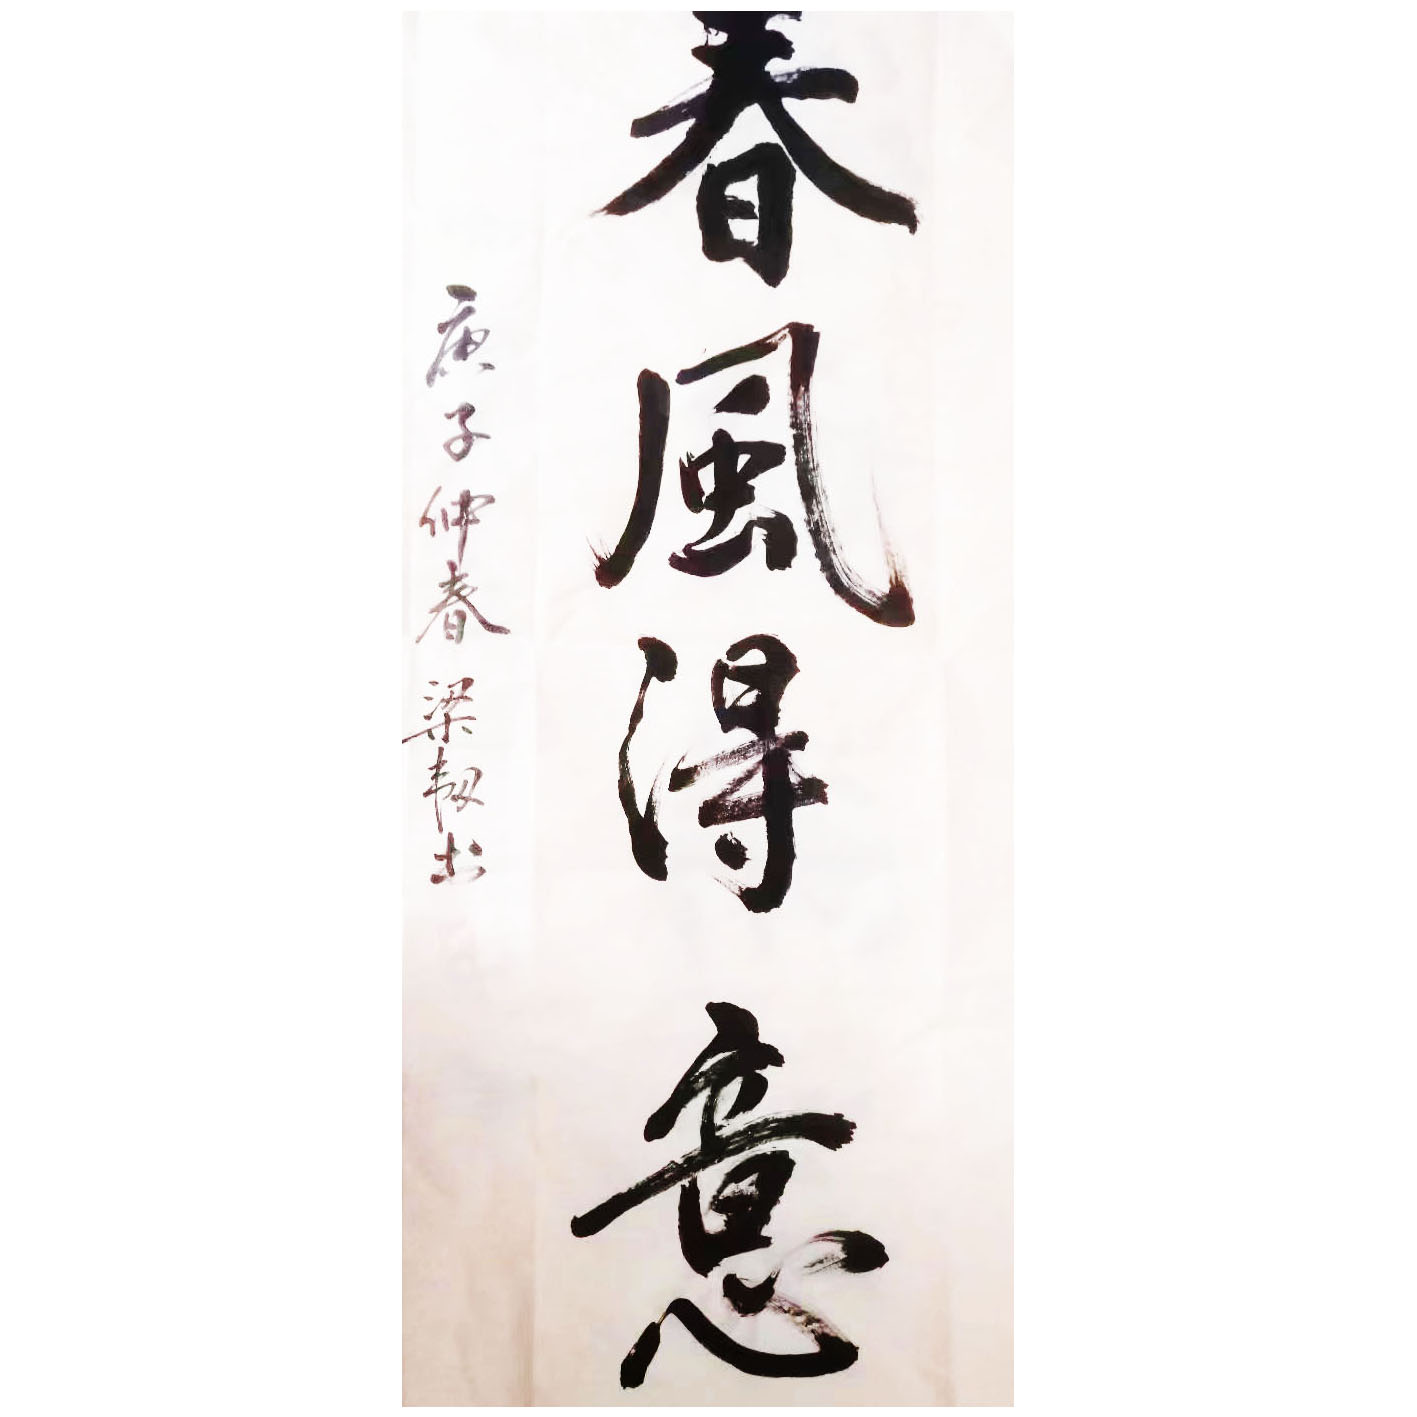 春風得意
庚子仲春 梁韧书